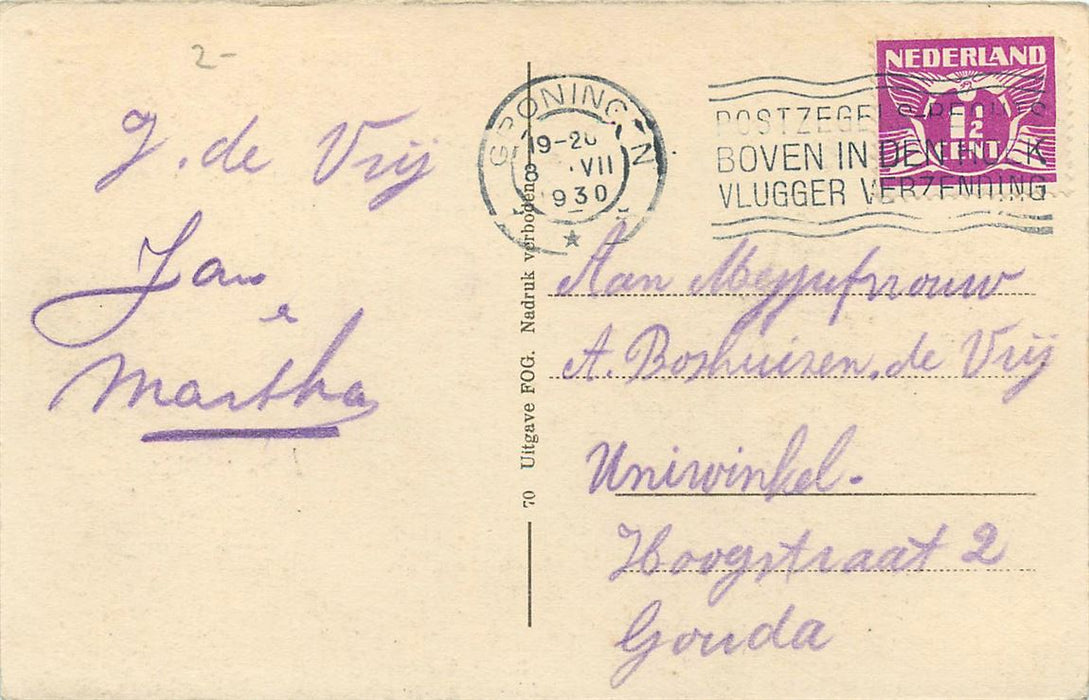 2-
J. de Vrij
Jan
e
Martha
70 Uitgave FOG. Nadruk verboden.
GRONINGEN
19-20
8 VII
1930
POSTZEGELS RECHTS
BOVEN IN DEN HOEK
VLUGGER VERZENDING
NEDERLAND
1 1/2
CENT
Aan Mejjufrouw
A. Boshuizen, de Vrij
Uniwinkel.
Hoogstraat 2
Gouda